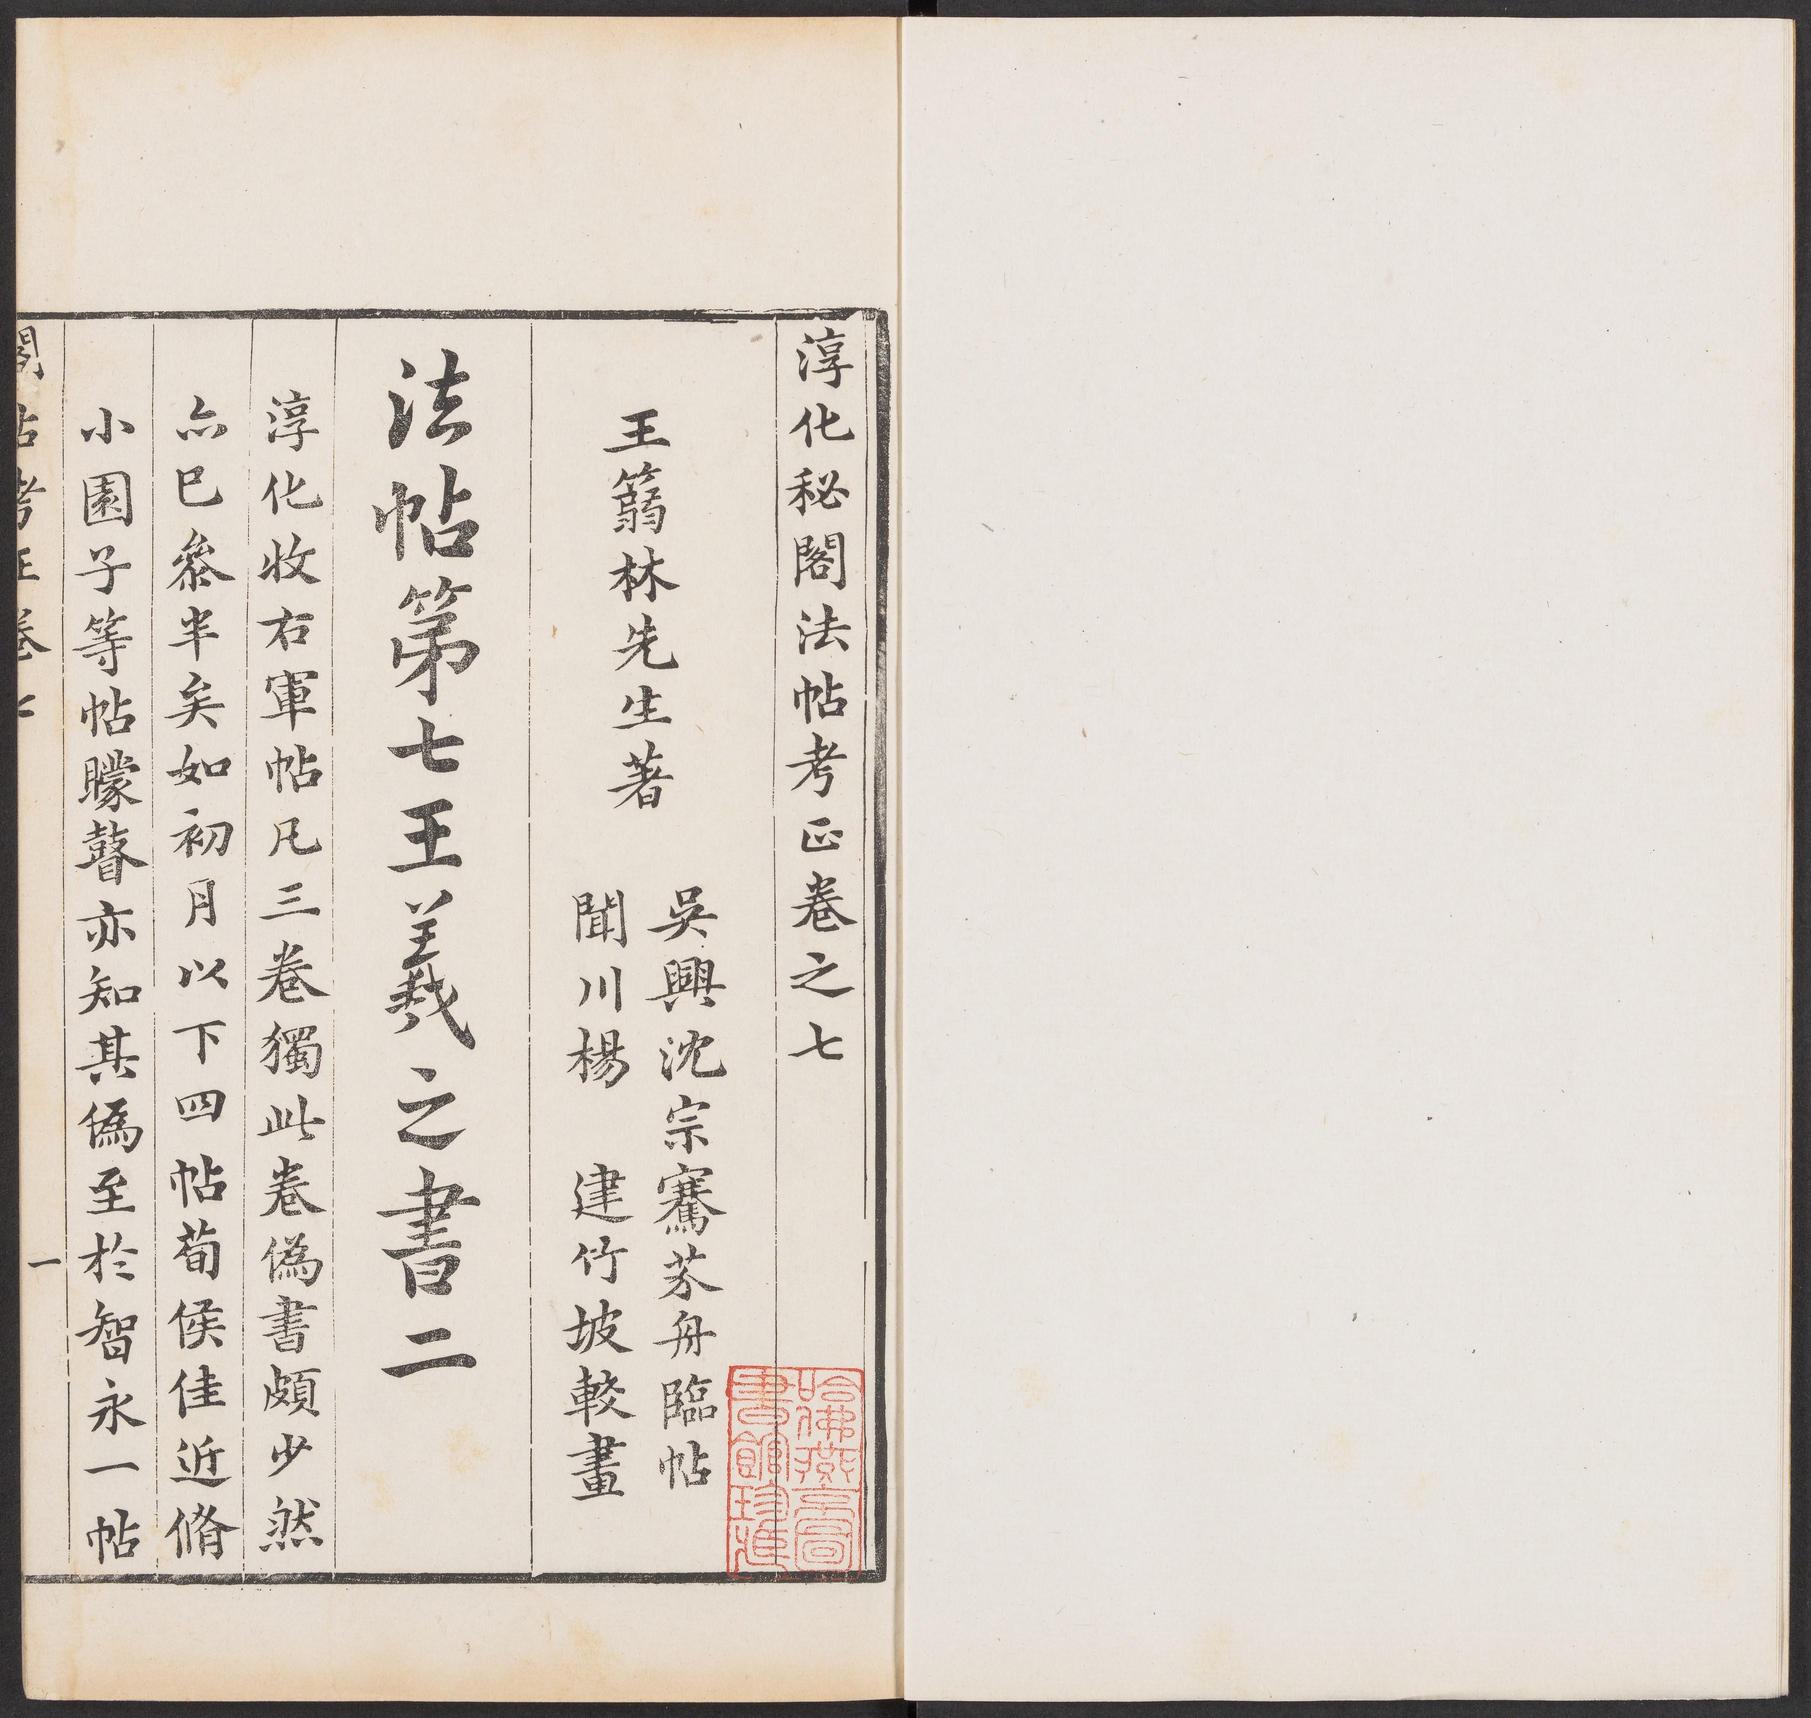 淳化秘閣法帖考正卷之七
王篛林先生著
吳興沈宗騫芥舟臨帖
聞川楊　建竹坡較畫
法帖第七王羲之書二
淳化收右軍帖凡三卷獨此卷偽書頗少然
亦已叅半矣如初月以下四帖荀侯佳近脩
小園子等帖矇瞽亦知其偽至於智永一帖
閣帖考正卷七
一
哈佛燕京圖書館珍藏